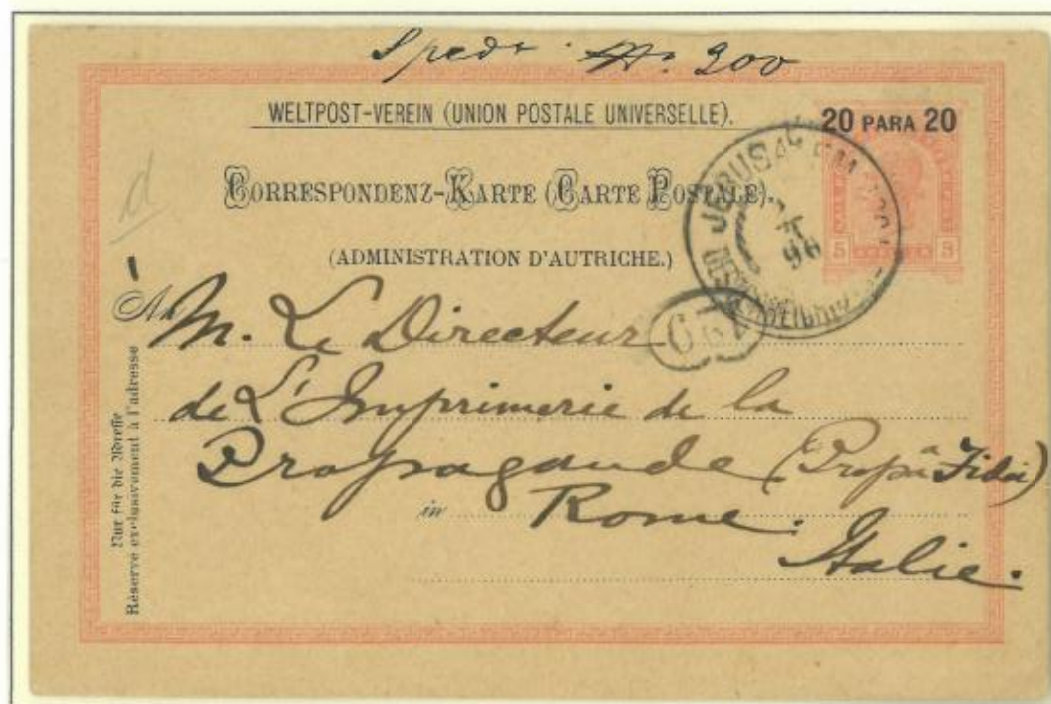 No. 200
WELTPOST-VEREIN (UNION POSTALE UNIVERSELLE).
20 PARA 20
CORRESPONDENZ-KARTE (CARTE POSTALE).
(ADMINISTRATION D'AUTRICHE.)
5 5
JERUSALEM
96
d
An M. Le Directeur
de L'Imprimerie de la
Propagande (Propa Fidei)
in Rome.
Italie.
Nur für die Adresse
Réservé exclusivement à l'adresse